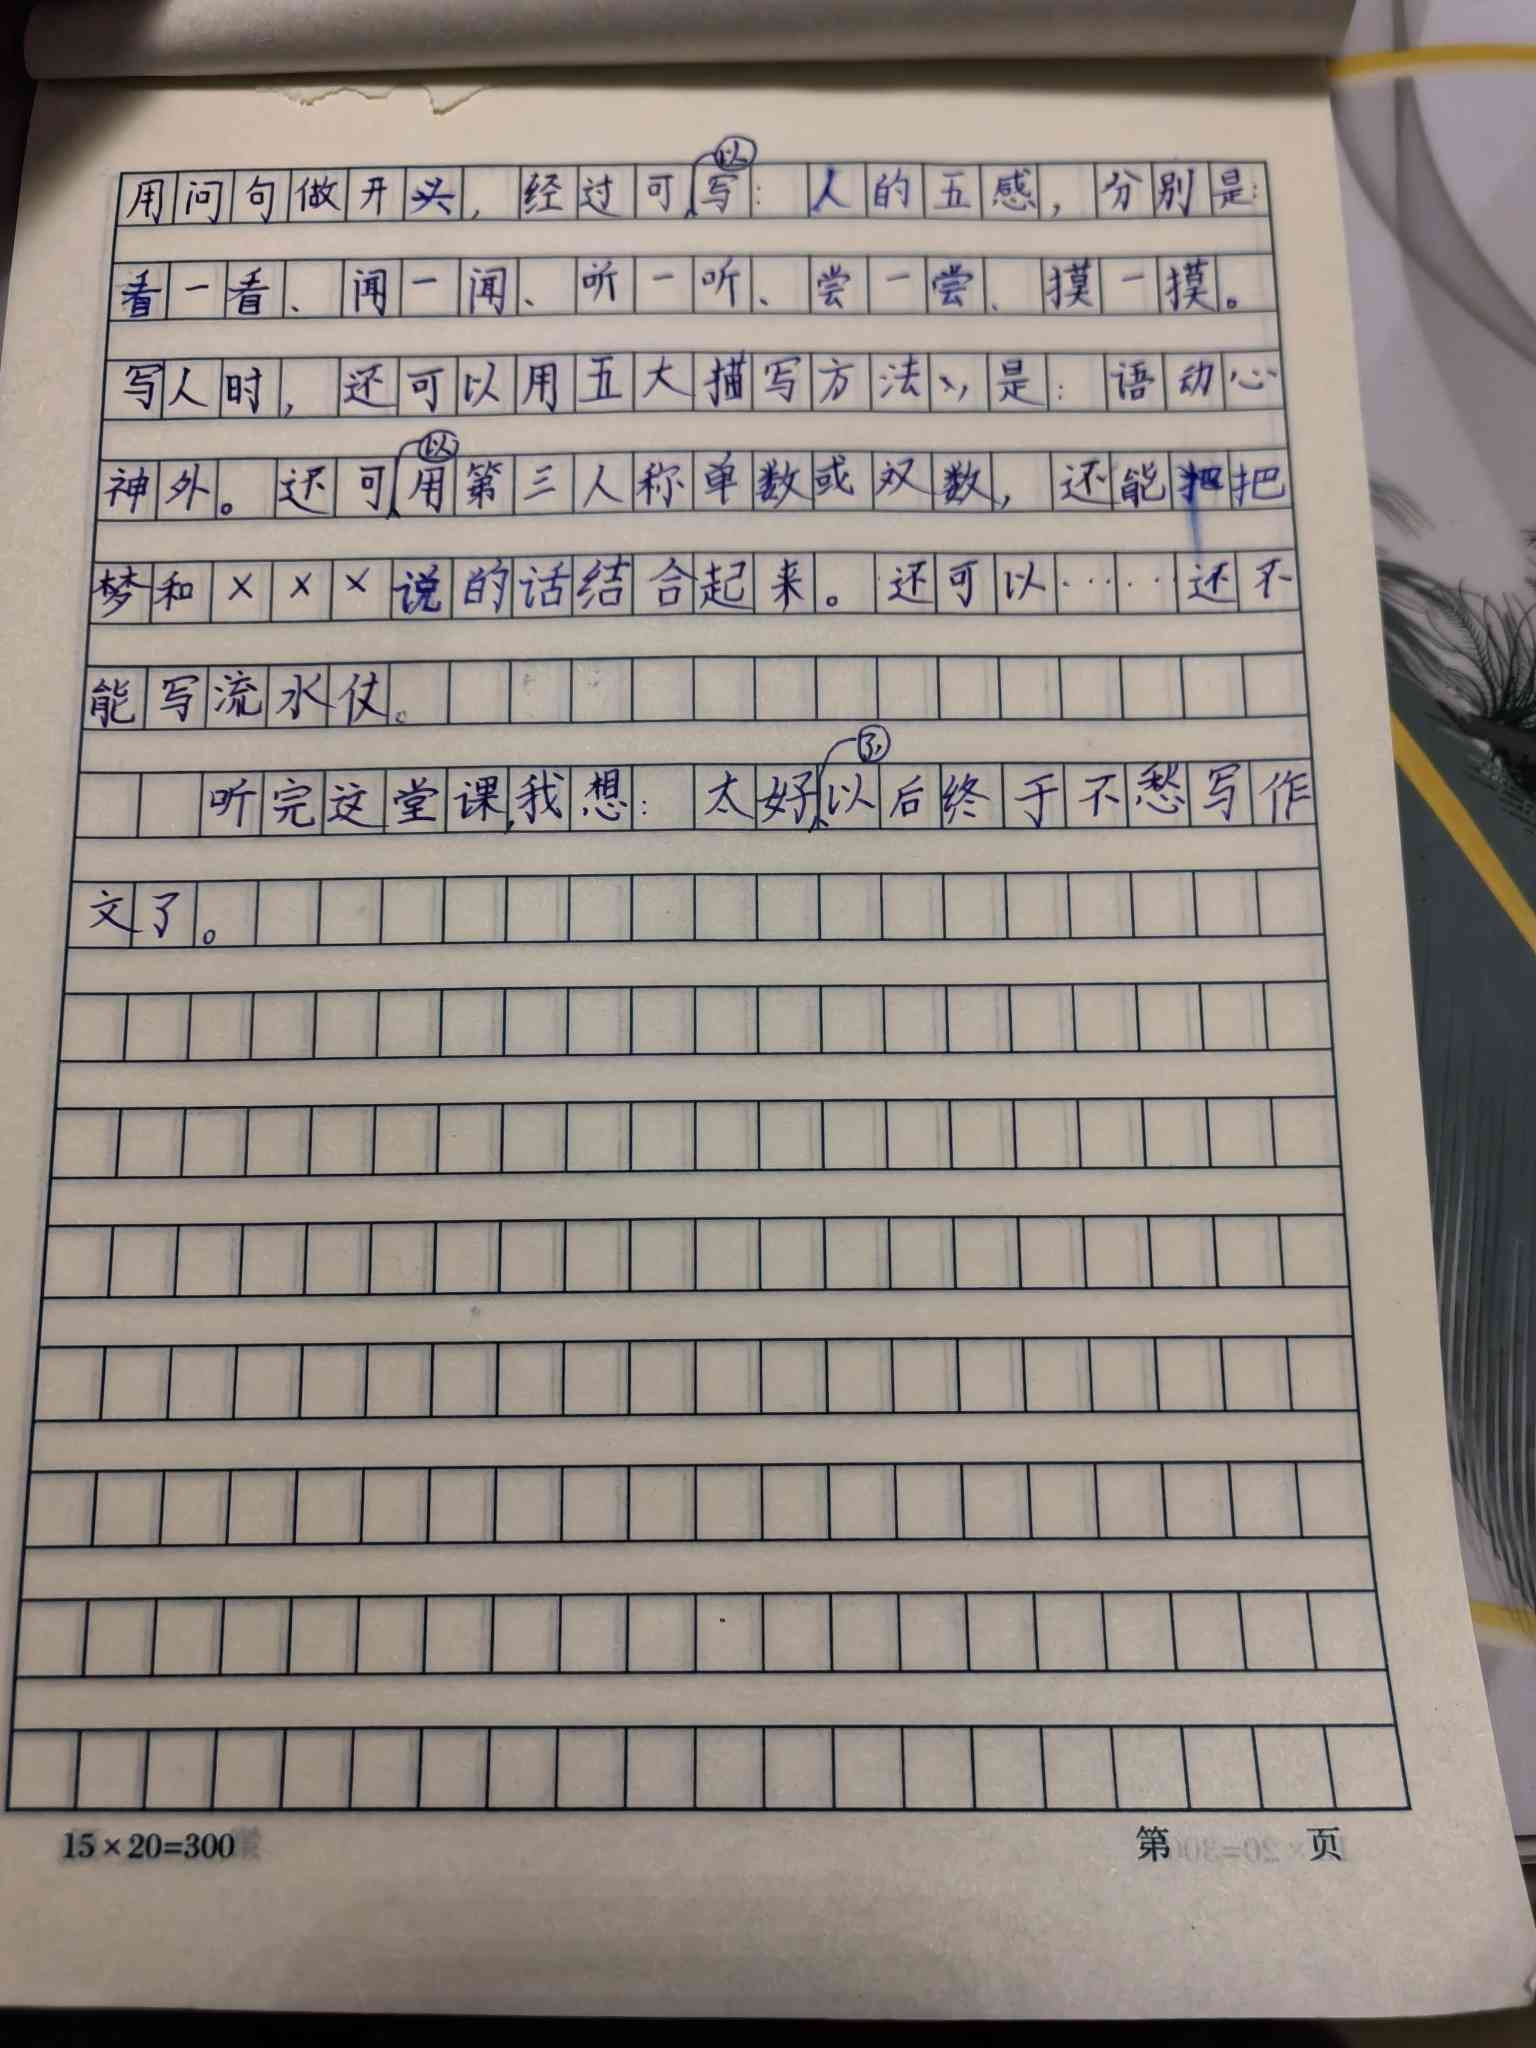 用问句做开头，经过可以写：人的五感，分别是：
看一看、闻一闻、听一听、尝一尝、摸一摸。
写人时，还可以用五大描写方法，是：语动心
神外。还可以用第三人称单数或双数，还能把
梦和×××说的话结合起来。还可以……还不
能写流水仗。
听完这堂课，我想：太好了，以后终于不愁写作
文了。
15×20=300 第 页